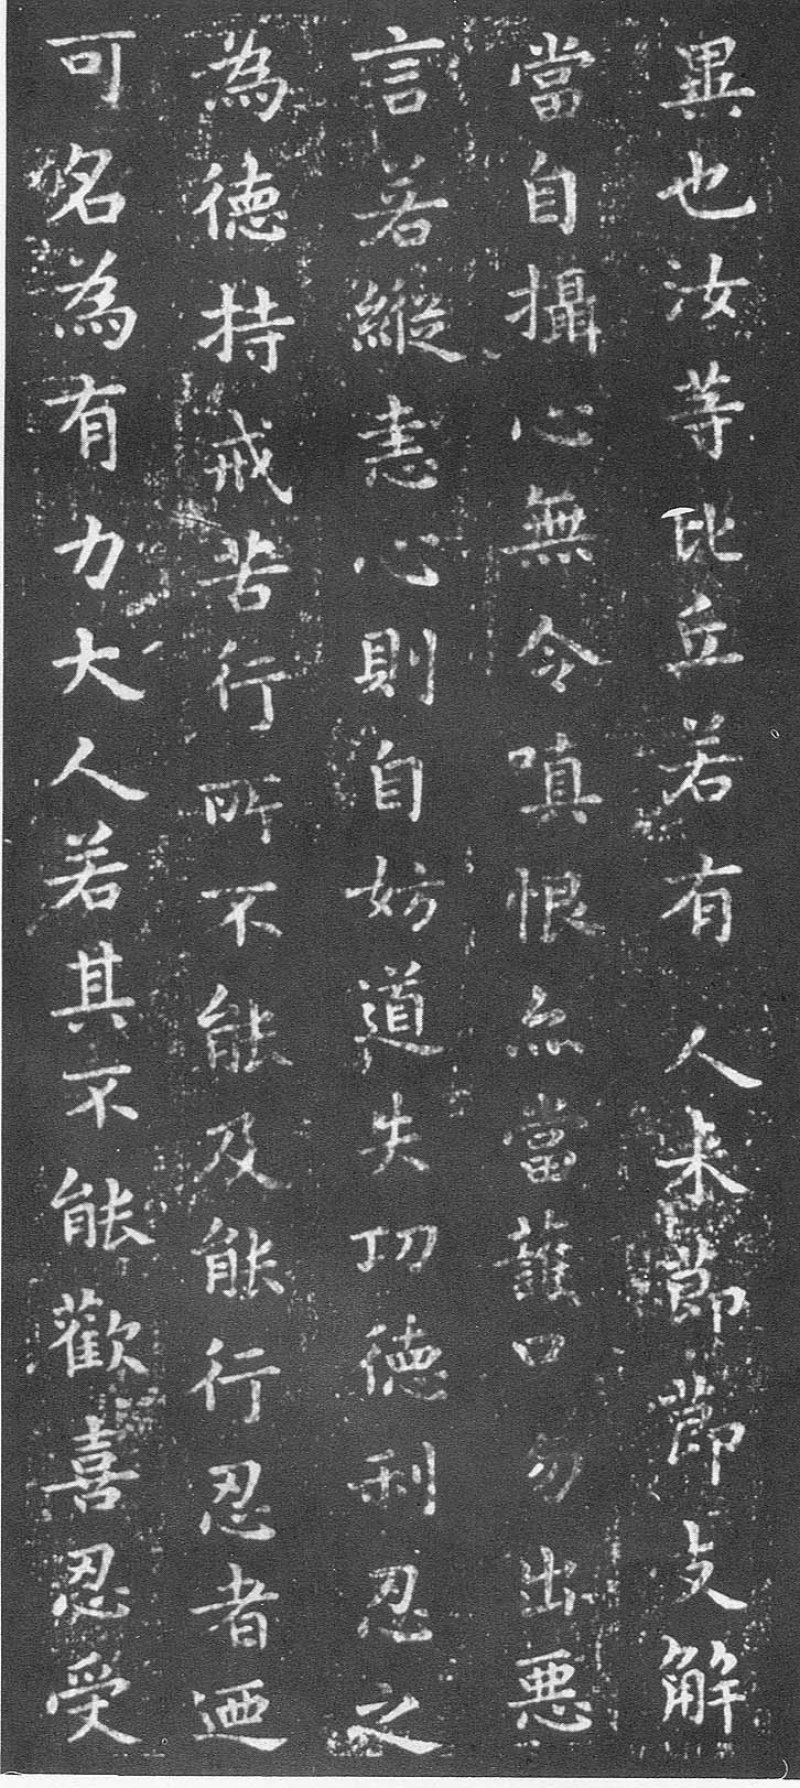 異也汝等比丘若有人来節節支解
當自攝心無令嗔恨亦當護口勿出惡
言若縱恚心則自妨道失功德利忍之
為德持戒苦行所不能及能行忍者迺
可名為有力大人若其不能歡喜忍受